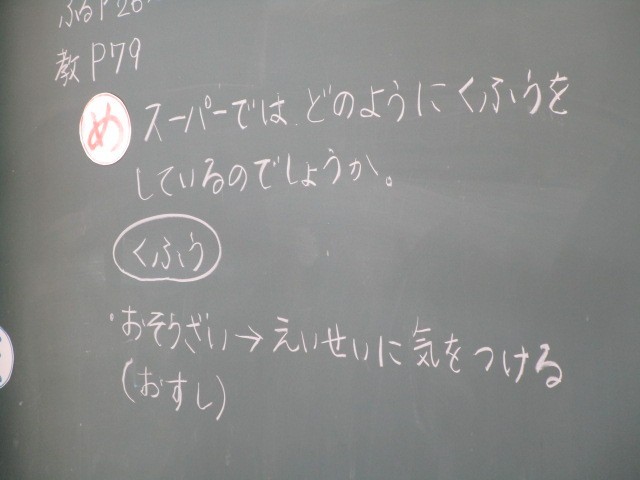 ふるP26
教P79
め スーパーでは、どのようにくふうを
しているのでしょうか。
くふう
・おそうざい→えいせいに気をつける
(おすし)